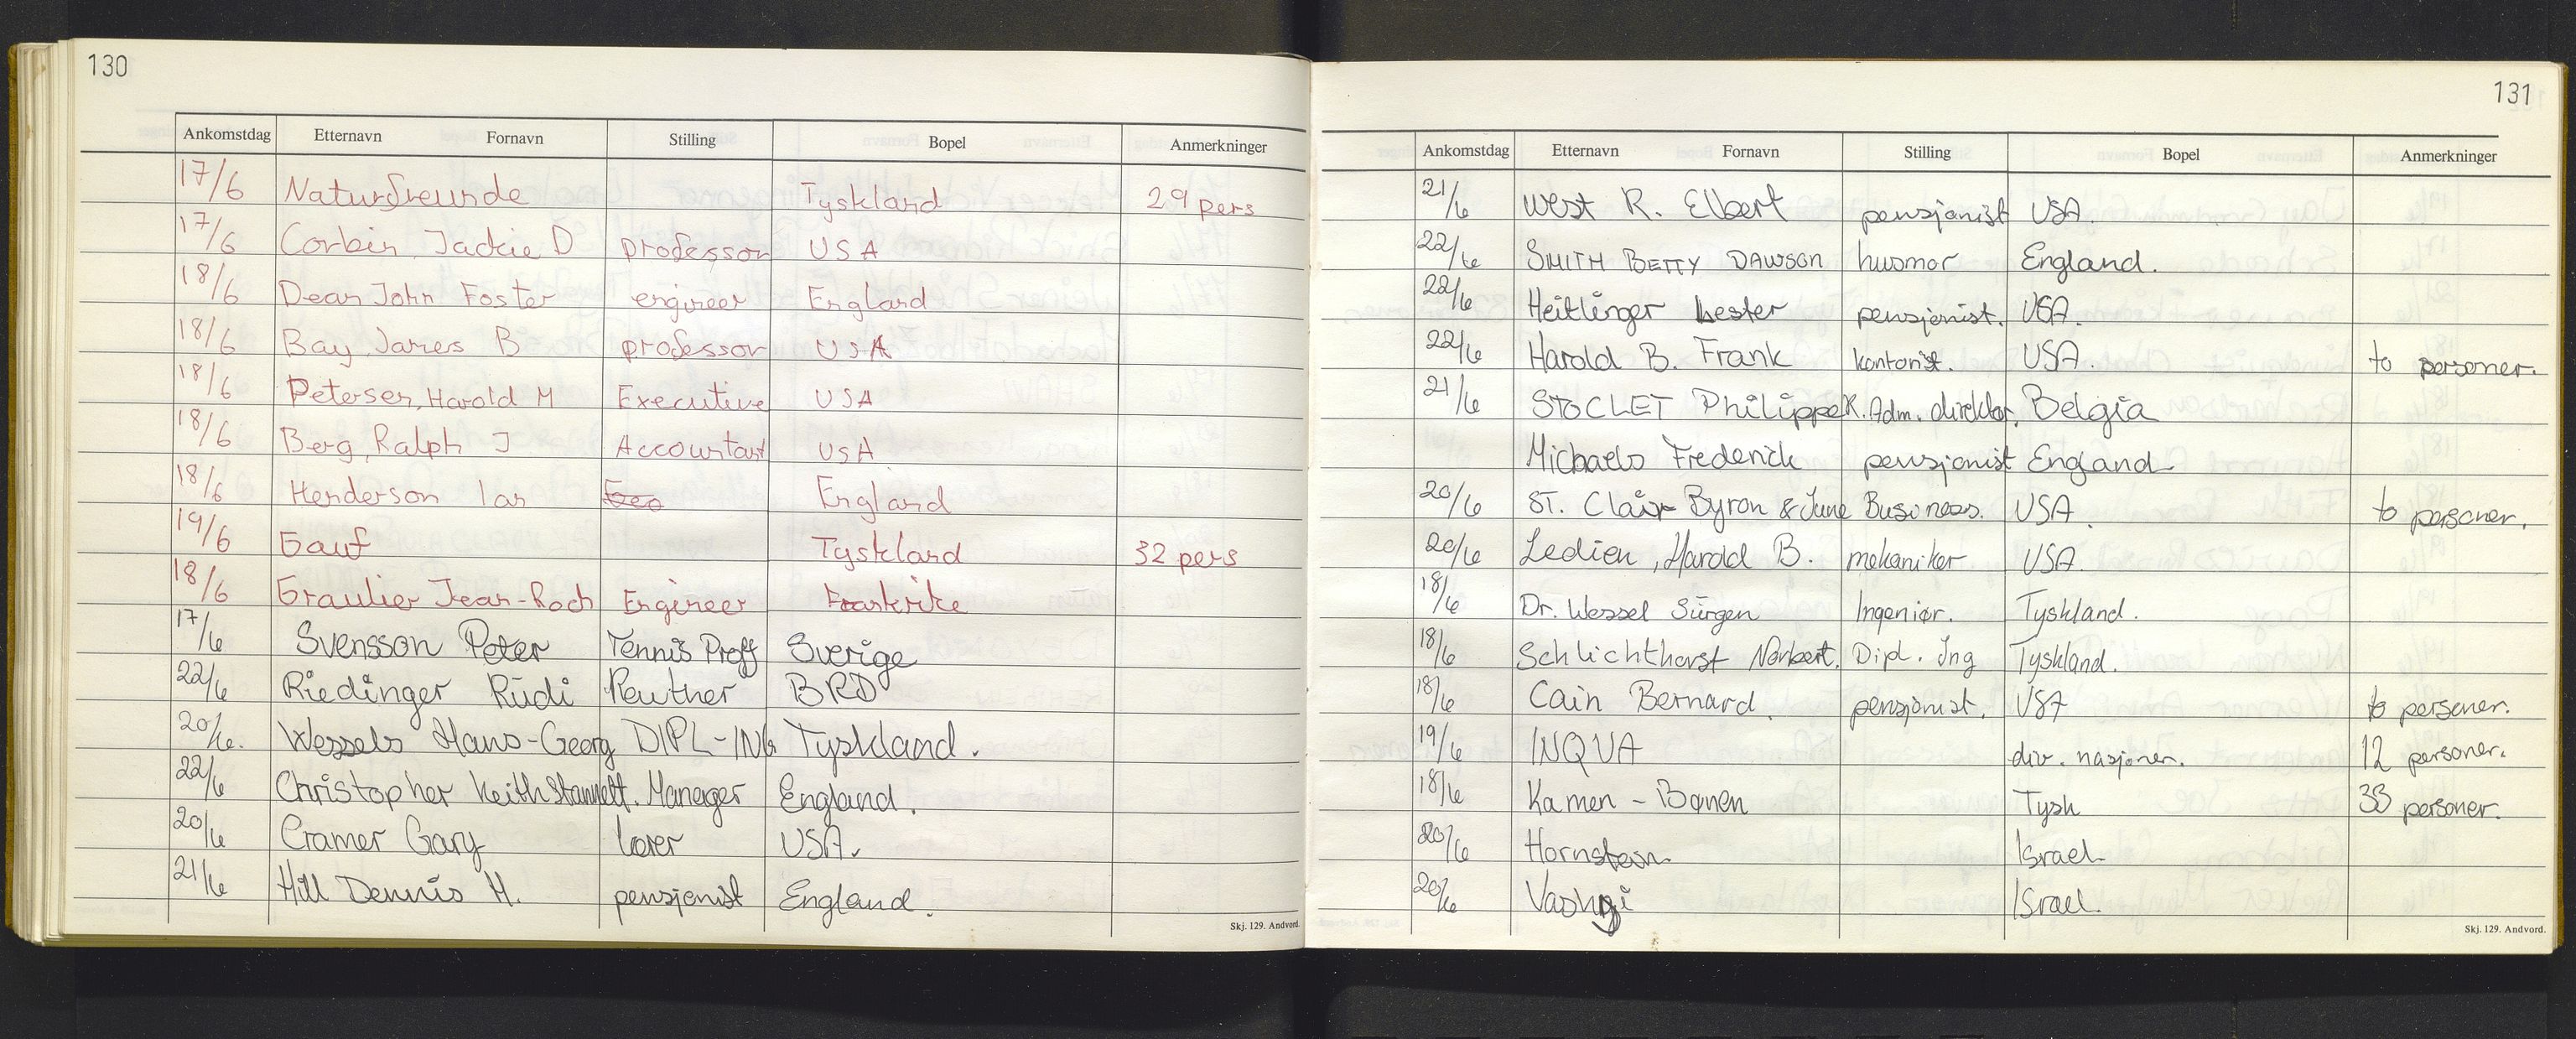 130
Ankomstdag Etternavn Fornavn Stilling Bopel Anmerkninger
17/6 Naturfreunde Tyskland 29 pers
17/6 Corbin, Jackie D professor USA
18/6 Dean John Foster engineer England
18/6 Bay, James B professor USA
18/6 Petersen, Harold M Executive USA
18/6 Berg, Ralph J Accountant USA
18/6 Henderson Ian England
19/6 Gauf Tyskland 32 pers
18/6 Graulier Jean-Roch Engineer Frankrike
17/6 Svensson Peter Tennis Proff Sverige
22/6 Riedinger Rüdi Rentner BRD
20/6. Wessels Hans-Georg DIPL-ING Tyskland.
22/6 Christopher Keith Manager England.
20/6 Cramer Gary lærer USA.
21/6 Hill Dennis H. pensjonist England.
Skj. 129. Andvord.
131
Ankomstdag Etternavn Fornavn Stilling Bopel Anmerkninger
21/6 West R. Elbert pensjonist USA.
22/6 SMITH BETTY DAWSON husmor England.
22/6 Heitlinger Lester pensjonist. USA.
22/6 Harold B. Frank kontorist. USA. to personer.
21/6 STOCLET Philippe K. Adm. direktør, Belgia
Michaels Frederick pensjonist England
20/6 ST. Clair Byron & June Business. USA. to personer.
20/6 Ledien, Harold B. mekaniker USA.
18/6 Dr. Wessel Sürgen Ingeniør. Tyskland.
18/6 Schlichthorst Norbert. Dipl. Ing Tyskland.
18/6 Cain Bernard. pensjonist. USA to personer.
19/6 INQUA div. nasjoner. 12 personer.
18/6 Kamen - Bønen Tysk 33 personer.
20/6 Hornstein Israel
20/6 Israel.
Skj. 129. Andvord.